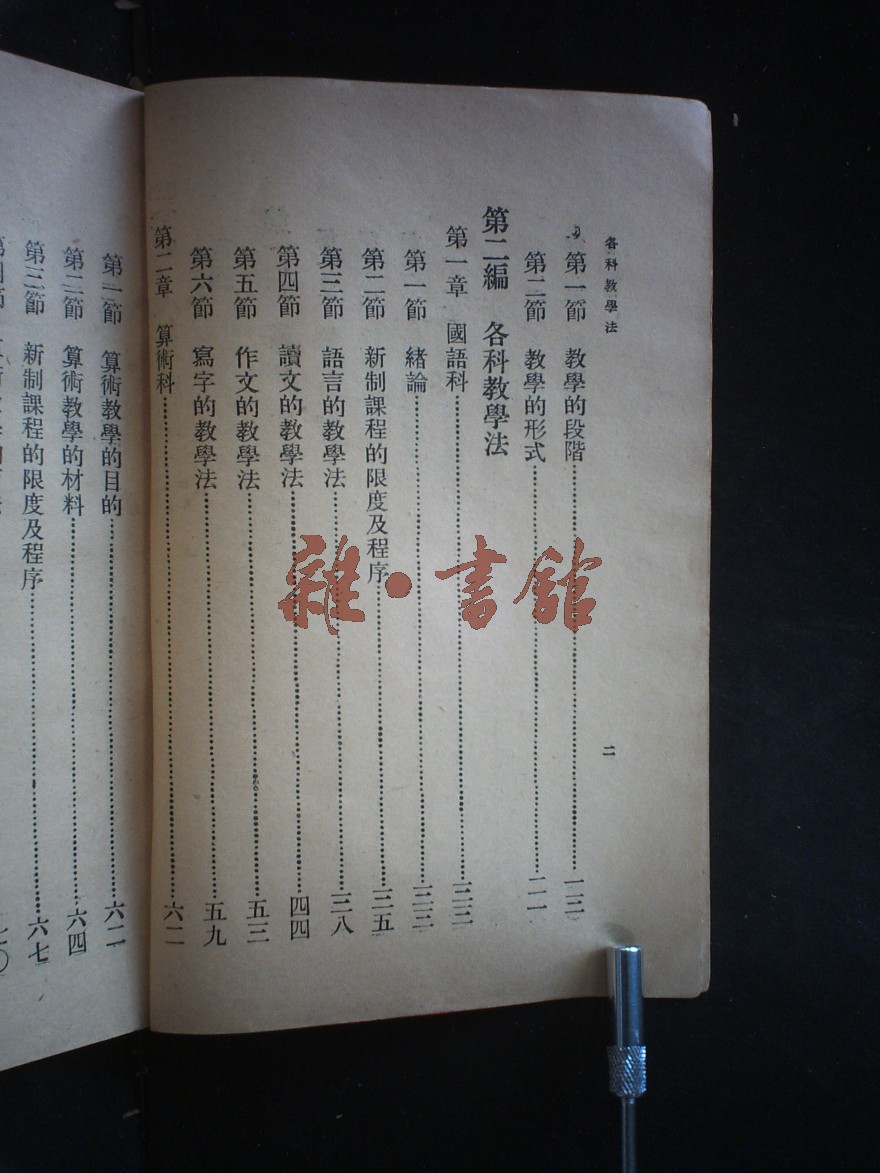 各科教學法
二
第一節 教學的段階……一三
第二節 教學的形式……二一
第二編 各科教學法
第一章 國語科……三三
第一節 緒論……三三
第二節 新制課程的限度及程序……三五
第三節 語言的教學法……三八
第四節 讀文的教學法……四四
第五節 作文的教學法……五三
第六節 寫字的教學法……五九
第二章 算術科……六二
第一節 算術教學的目的……六二
第二節 算術教學的材料……六四
第三節 新制課程的限度及程序……六七
雜·書館